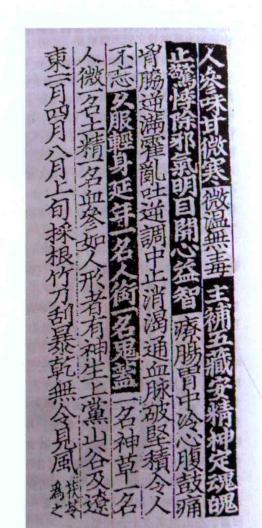 人參味甘微寒微溫無毒主補五藏安精神定魂魄
止驚悸除邪氣明目開心益智療腸胃中冷心腹鼓痛
胷脇逆滿霍亂吐逆調中止消渴通血脉破堅積令人
不忘久服輕身延年一名人銜一名鬼蓋一名神草一名
人微一名土精一名血參如人形者有神生上黨山谷及遼
東二月四月八月上旬採根竹刀刮暴乾無令見風茯苓為之